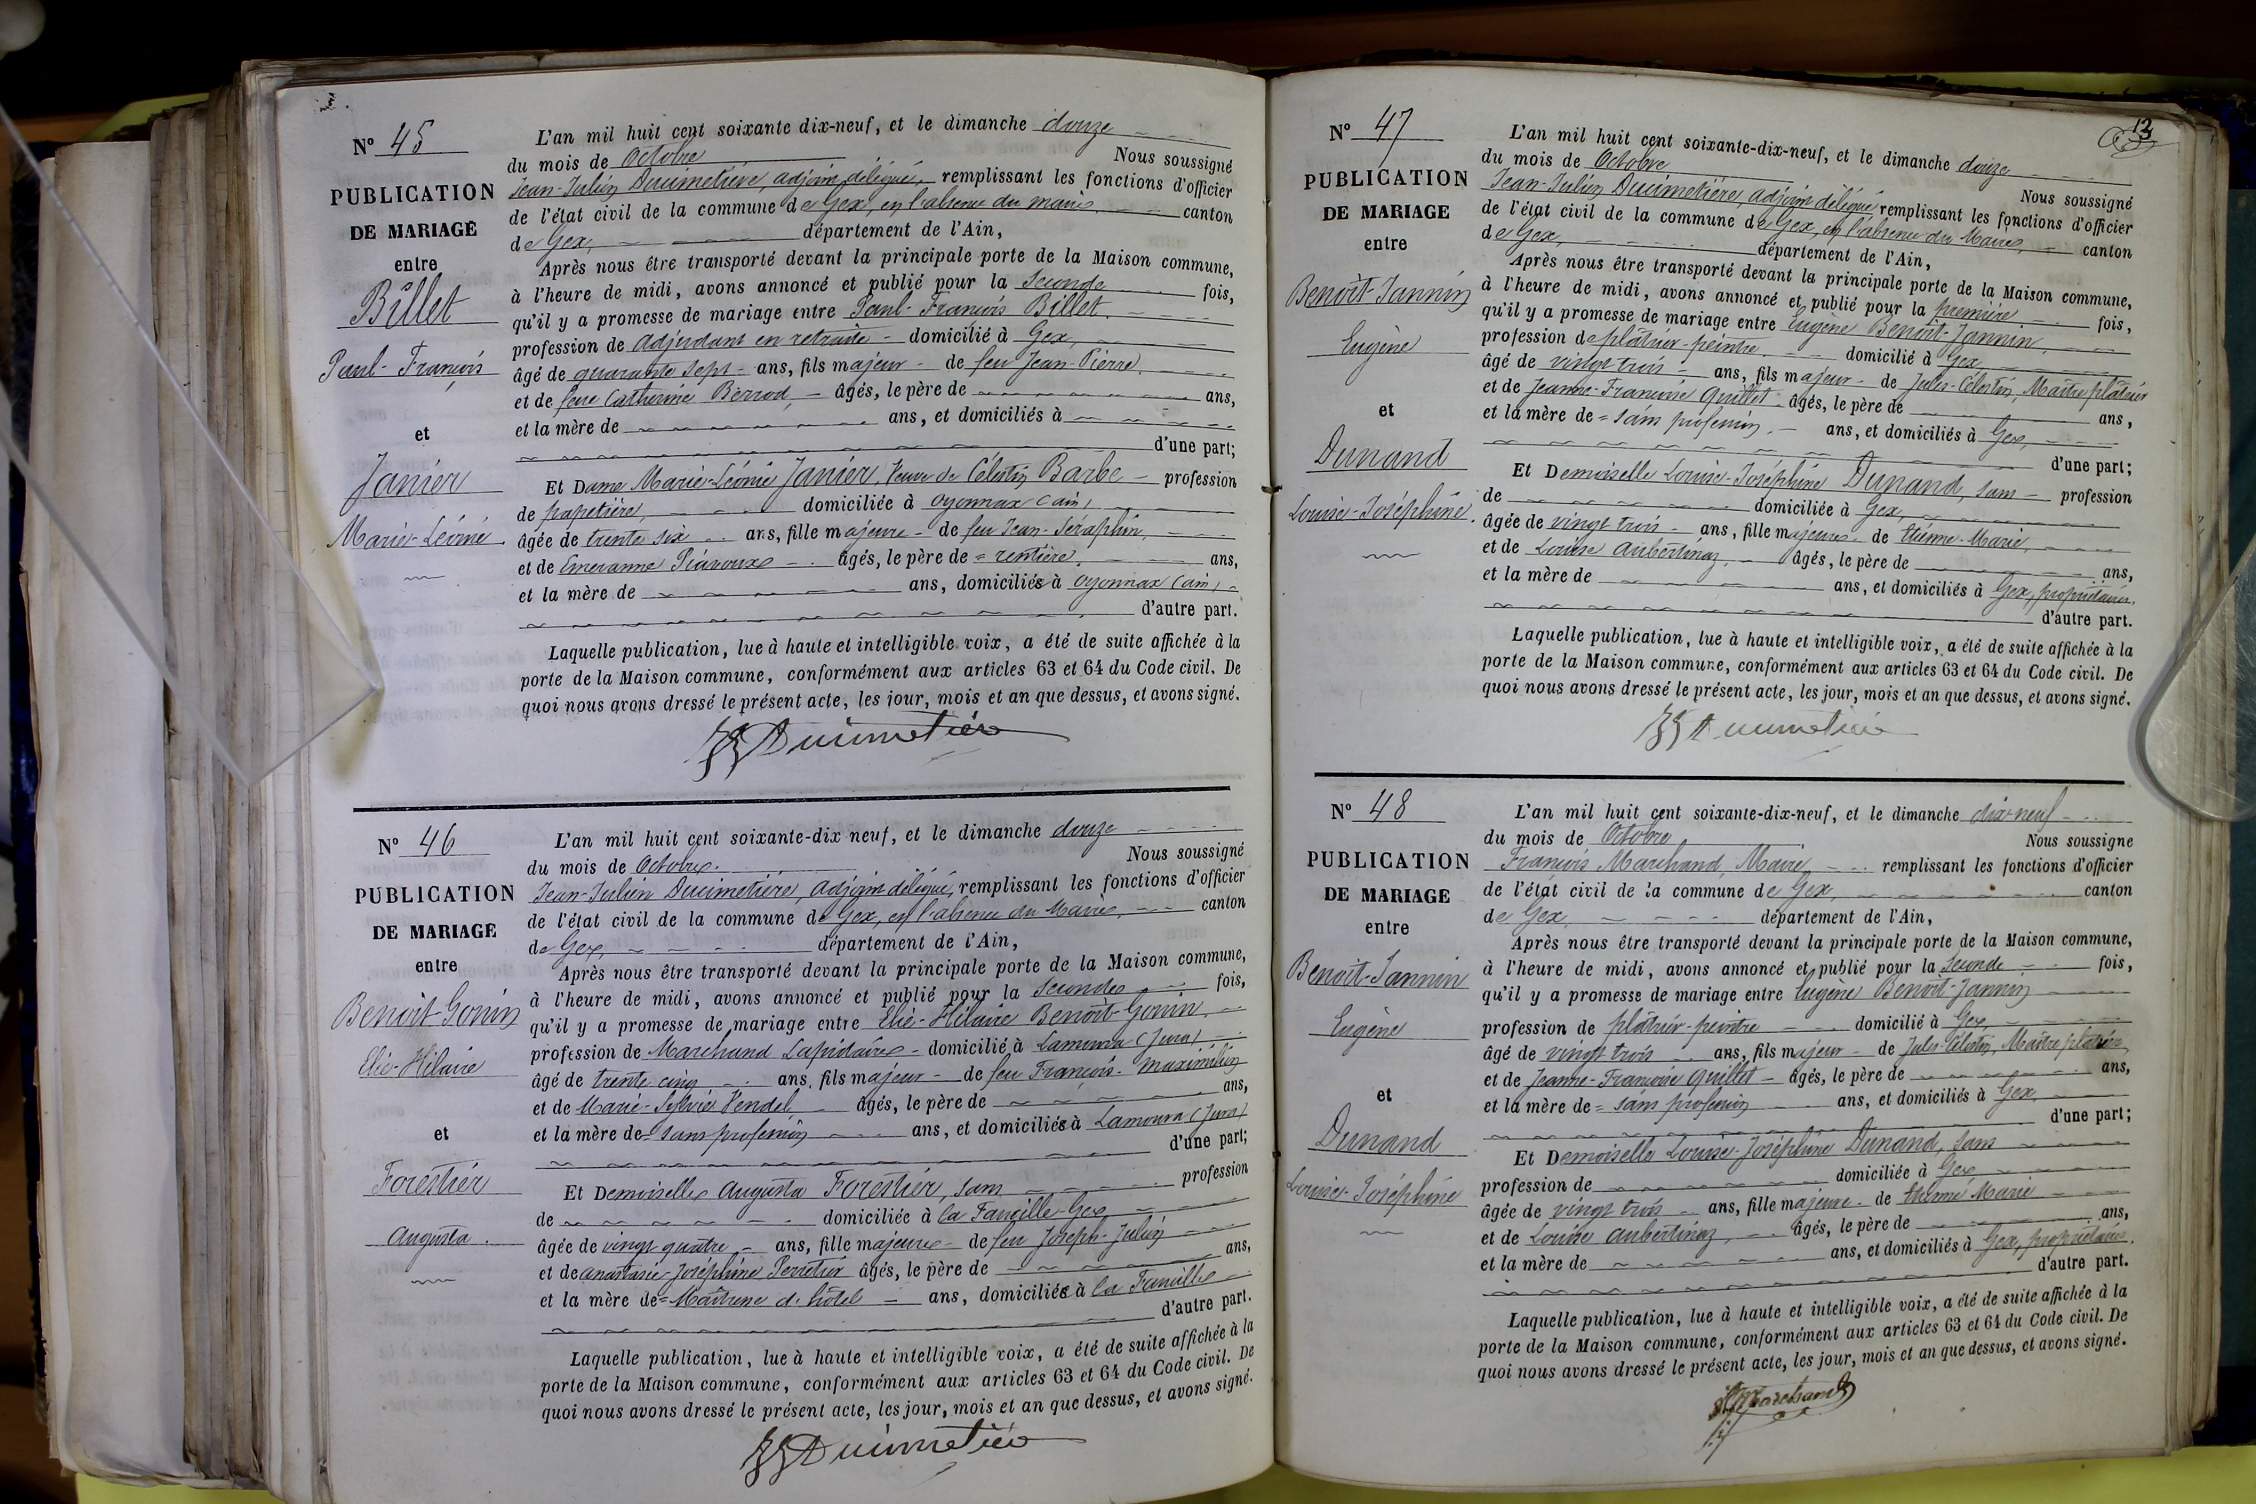 N° 45
PUBLICATION
DE MARIAGE
entre
Billet
Paul-François
et
Janier
Marie-Léonie
L'an mil huit cent soixante dix-neuf, et le dimanche douze
du mois de Octobre Nous soussigné
Jean-Julien Ducimetière, adjoint délégué, remplissant les fonctions d'officier
de l'état civil de la commune de Gex, en l'absence du maire, canton
de Gex, département de l'Ain,
Après nous être transporté devant la principale porte de la Maison commune,
à l'heure de midi, avons annoncé et publié pour la Seconde fois,
qu'il y a promesse de mariage entre Paul-François Billet.
profession de adjudant en retraite - domicilié à Gex,
âgé de quarante sept - ans, fils majeur - de feu Jean-Pierre,
et de feue Catherine Berrod, - âgés, le père de ans,
et la mère de ans, et domiciliés à
d'une part;
Et Dame Marie-Léonie Janier, Veuve de Célestin Barbe - profession
de papetière, domiciliée à Oyonnax (ain)
âgée de trente six ans, fille majeure - de feu Jean-Séraphin,
et de Emeranne - âgés, le père de = rentière, ans,
et la mère de ans, domiciliés à Oyonnax (ain) -
d'autre part.
Laquelle publication, lue à haute et intelligible voix, a été de suite affichée à la
porte de la Maison commune, conformément aux articles 63 et 64 du Code civil. De
quoi nous avons dressé le présent acte, les jour, mois et an que dessus, et avons signé.
JJ Ducimetière
N° 46
PUBLICATION
DE MARIAGE
entre
Benoit-Gonin
Elie-Hilaire
et
Forestier
Augusta.
L'an mil huit cent soixante-dix neuf, et le dimanche douze
du mois de Octobre. Nous soussigné
Jean-Julien Ducimetière, adjoint délégué, remplissant les fonctions d'officier
de l'état civil de la commune de Gex, en l'absence du Maire, canton
de Gex, département de l'Ain,
Après nous être transporté devant la principale porte de la Maison commune,
à l'heure de midi, avons annoncé et publié pour la Seconde fois,
qu'il y a promesse de mariage entre Elie-Hilaire Benoît-Gonin,
profession de Marchand Lapidaire - domicilié à Lamoura (Jura)
âgé de trente cinq ans, fils majeur - de feu François-Maximilien
et de Marie-Sylvie Vendel, âgés, le père de ans,
et la mère de = sans profession ans, et domiciliés à Lamoura (Jura)
d'une part;
Et Demoiselle Augusta Forestier, sans profession
de domiciliée à la Faucille-Gex
âgée de vingt quatre - ans, fille majeure - de feu Joseph-Julien
et de anastasie-Joséphine Perretier âgés, le père de ans,
et la mère de = Maîtresse d'hôtel - ans, domiciliés à la Faucille
d'autre part.
Laquelle publication, lue à haute et intelligible voix, a été de suite affichée à la
porte de la Maison commune, conformément aux articles 63 et 64 du Code civil. De
quoi nous avons dressé le présent acte, les jour, mois et an que dessus, et avons signé.
JJ Ducimetière
13
N° 47
PUBLICATION
DE MARIAGE
entre
Benoît-Jannin
Eugène
et
Dunand
Louise-Joséphine.
L'an mil huit cent soixante-dix-neuf, et le dimanche douze
du mois de Octobre Nous soussigné
Jean-Julien Ducimetière, adjoint délégué remplissant les fonctions d'officier
de l'état civil de la commune de Gex, en l'absence du Maire, - canton
de Gex, département de l'Ain,
Après nous être transporté devant la principale porte de la Maison commune,
à l'heure de midi, avons annoncé et publié pour la première fois,
qu'il y a promesse de mariage entre Eugène Benoît-Jannin,
profession de plâtrier-peintre domicilié à Gex
âgé de vingt trois - ans, fils majeur - de Jules-Célestin, Maître plâtrier
et de Jeanne-Françoise Quillet - âgés, le père de ans,
et la mère de = sans profession, - ans, et domiciliés à Gex,
d'une part;
Et Demoiselle Louise-Joséphine Dunand, sans - profession
de domiciliée à Gex,
âgée de vingt trois - ans, fille majeure - de Etienne-Marie,
et de Louise aubertinaz, - âgés, le père de ans,
et la mère de ans, et domiciliés à Gex, propriétaires.
d'autre part.
Laquelle publication, lue à haute et intelligible voix, a été de suite affichée à la
porte de la Maison commune, conformément aux articles 63 et 64 du Code civil. De
quoi nous avons dressé le présent acte, les jour, mois et an que dessus, et avons signé.
JJ Ducimetière
N° 48
PUBLICATION
DE MARIAGE
entre
Benoît-Jannin
Eugène
et
Dunand
Louise-Joséphine
L'an mil huit cent soixante-dix-neuf, et le dimanche dix-neuf
du mois de Octobre Nous soussigné
François Marchand Maire remplissant les fonctions d'officier
de l'état civil de la commune de Gex, canton
de Gex département de l'Ain,
Après nous être transporté devant la principale porte de la Maison commune,
à l'heure de midi, avons annoncé et publié pour la Seconde fois,
qu'il y a promesse de mariage entre Eugène Benoît-Jannin
profession de plâtrier-peintre domicilié à Gex,
âgé de vingt trois ans, fils majeur - de Jules-Célestin, Maître plâtrier,
et de Jeanne-Françoise Quillet - âgés, le père de ans,
et la mère de = sans profession ans, et domiciliés à Gex,
d'une part;
Et Demoiselle Louise-Joséphine Dunand, sans
profession de domiciliée à Gex
âgée de vingt trois ans, fille majeure - de Etienne Marie
et de Louise aubertinaz, - âgés, le père de ans,
et la mère de ans, et domiciliés à Gex, propriétaires.
d'autre part.
Laquelle publication, lue à haute et intelligible voix, a été de suite affichée à la
porte de la Maison commune, conformément aux articles 63 et 64 du Code civil. De
quoi nous avons dressé le présent acte, les jour, mois et an que dessus, et avons signé.
Marchand